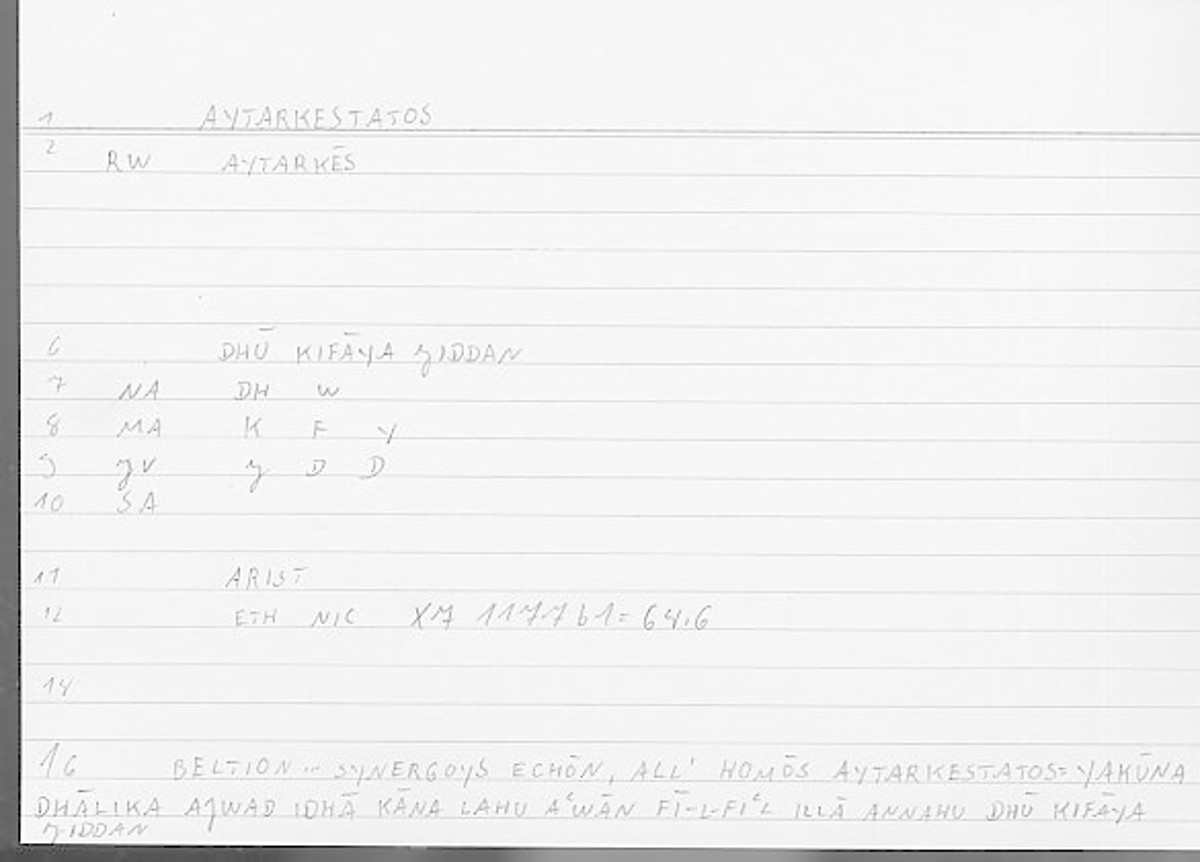 1 AYTARKESTATOS
2 RW AYTARKĒS
6 DHŪ KIFĀYA JIDDAN
7 NA DH W
8 MA K F Y
9 JV J D D
10 SA
11 ARIST
12 ETH NIC X7 1177 b1= 64.6
14
16 BELTION ... SYNERGOYS ECHŌN, ALL' HOMŌS AYTARKESTATOS= YAKŪNA
DHĀLIKA AJWAD IDHĀ KĀNA LAHU AʿWĀN FĪ-L-FIʿL ILLĀ ANNAHU DHŪ KIFĀYA
JIDDAN